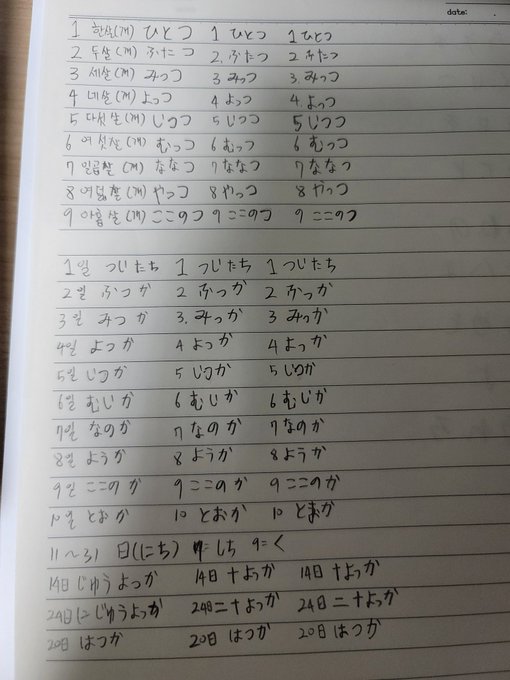 date:
1 한살(개) ひとつ 1 ひとつ 1 ひとつ
2 두살(개) ふたつ 2. ふたつ 2 ふたつ
3 세살(개) みっつ 3 みっつ 3. みっつ
4 네살(개) よっつ 4 よっつ 4. よっつ
5 다섯살(개) いつつ 5 いつつ 5 いつつ
6 여섯살(개) むっつ 6 むっつ 6 むっつ
7 일곱살(개) ななつ 7 ななつ 7 ななつ
8 여덟살(개) やっつ 8 やっつ 8 やっつ
9 아홉살(개) ここのつ 9 ここのつ 9 ここのつ
1일 ついたち 1 ついたち 1 ついたち
2일 ふつか 2 ふっか 2 ふっか
3일 みつか 3. みっか 3 みっか
4일 よっか 4 よっか 4 よっか
5일 いつか 5 いつか 5 いつか
6일 むいか 6 むいか 6 むいか
7일 なのか 7 なのか 7 なのか
8일 ようか 8 ようか 8 ようか
9일 ここのか 9 ここのか 9 ここのか
10일 とおか 10 とおか 10 とおか
11~31 日(にち) 7=しち 9=く
14日 じゅうよっか 14日 十よっか 14日 十よっか
24日 にじゅうよっか 24日 二十よっか 24日 二十よっか
20日 はつか 20日 はつか 20日 はつか